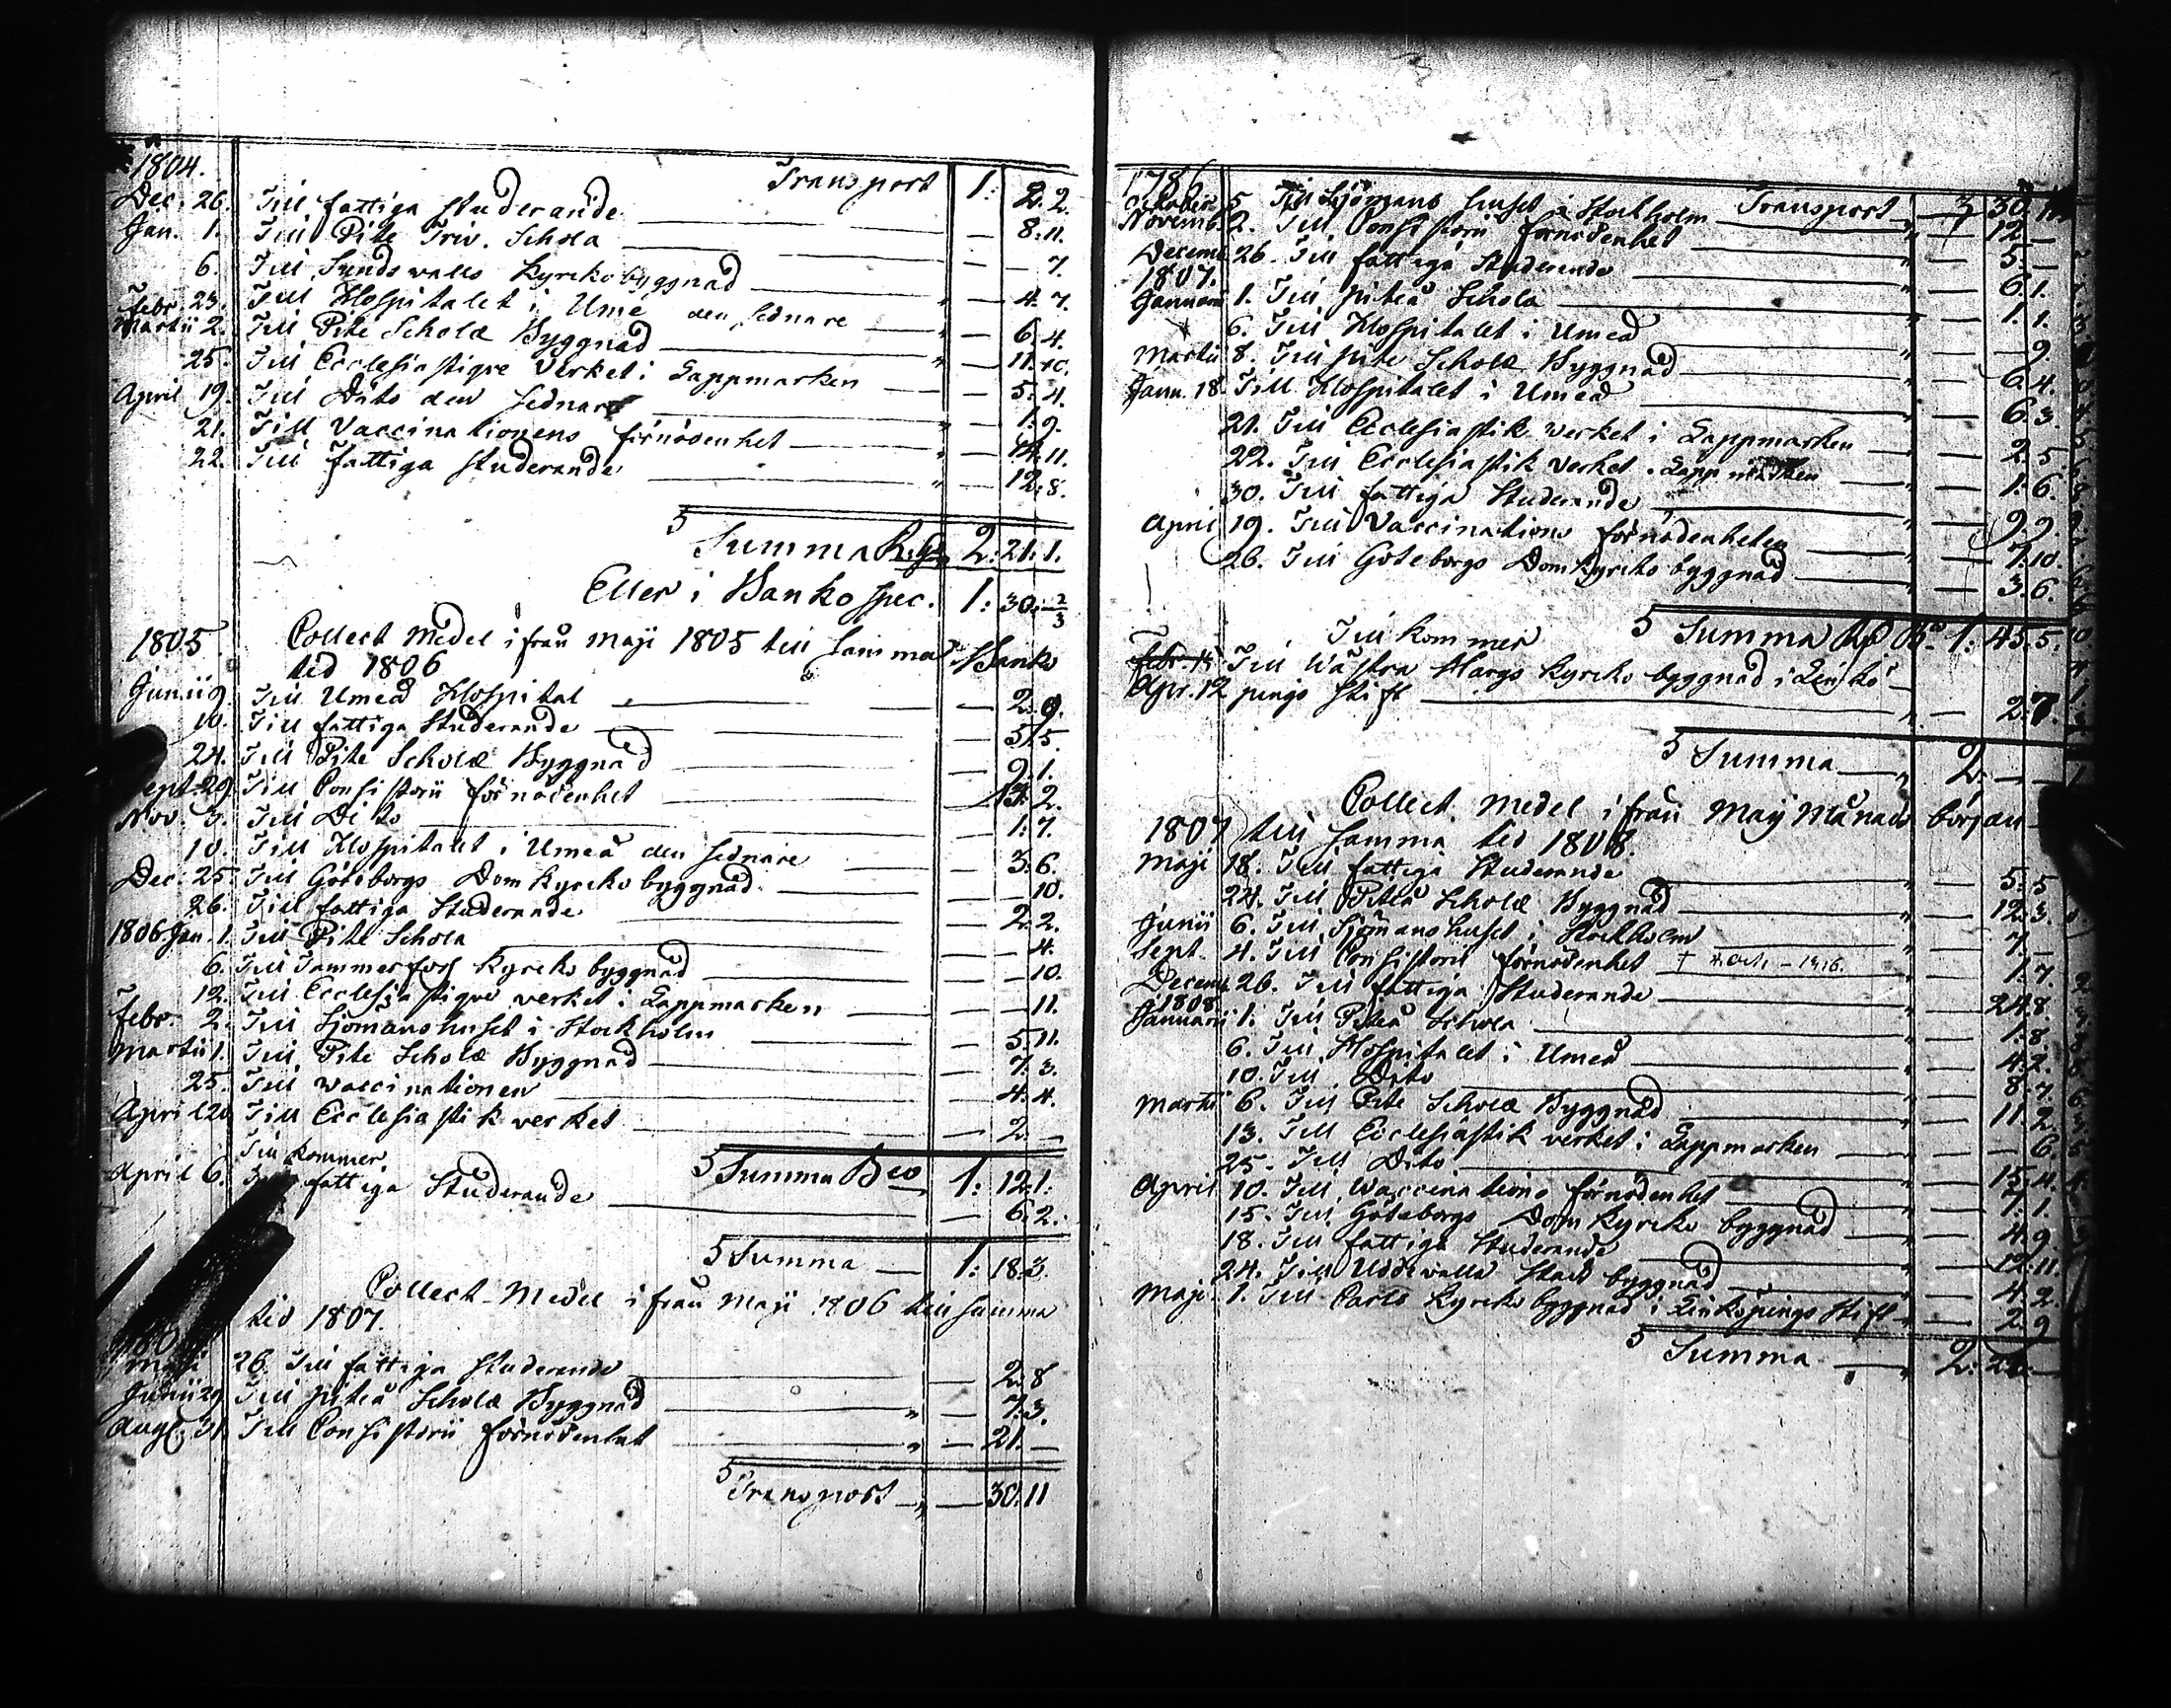 1804.
Transport 1: 2.2.
Dec. 26. Till fattiga studerande — 8.11.
Jan. 1. Till Pite Triv. Schola — — 7.
6. Till Sundswalls Kyrckobyggnad " — 4.7.
Febr. 23. Till Hospitalet i Ume den sednare — 6.4.
Martii 2. Till Pite Scholæ Byggnad " — 11.10.
25. Till Ecclesiastique Verket i Lappmarken — 5.4.
April 19. Till Dito den sednare " — 1.9.
21. Till Vaccinationens förnödenhet " — 14.11.
22. Till fattiga studerande " — 12.8.
Summa Rgs 2: 21.1.
Eller i Banko spec. 1: 30. 2/3
1805 Collect Medel ifrån Maji 1805 till samma
tid 1806 Banko
Junii 9. Till Umeå Hospital — 2.9.
10. Till fattiga Studerande — 5.5.
24. Till Pite Scholæ Byggnad — 9.1.
Sept. 29 Till Consistorii förnödenhet — 13.2.
Nov. 3. Till Dito — 1.7.
10. Till Hospitalet i Umeå den sednare — 3.6.
Dec. 25. Till Göteborgs Domkyrcko byggnad — 10.
26. Till fattiga Studerande — 2.2.
1806 Jan. 1. Till Pite Schola — 4.
6. Till Tammerfors Kyrcko byggnad — 10.
12. Till Ecclesiastique verket i Lappmarken — 11.
Febr. 2. Till Sjömanshuset i Stockholm — 5.11.
Martii 1. Till Pite Scholæ Byggnad — 7.3.
25. Till waccinationen — 4.4.
April 20 Till Ecclesiastik verket — 2. —
Summa Bco 1: 12.1.
Till kommer
April 6. fattiga Studerande — 6.2.
Summa — 1: 18.3.
Collect-Medel ifrån Maji 1806 till samma
tid 1807.
Maji 26. Till fattiga Studerende — 2.8
Junii 29 Till piteå Scholæ Byggnad " — 7.3.
Aug. 31 Till Consistorii förnödenhet " — 21. —
Transport " — 30.11
Transport — 30.11.
October 5. Till Sjömans huset i Stockholm " — 12. —
Novemb. 2. Till Consistorii förnödenhet " — 5. —
Decemb. 26. Till fattiga Studerende — 6.1.
1807.
Januarii 1. Till piteå Schola " — 1.1.
6. Till Hospitalet i Umeå " — — 9.
Martii 8. Till pite Scholæ Byggnad " — 6.4.
Jann. 18. Till Hospitalet i Umeå — 6.3.
21. Till Ecclesiastik werket i Lappmarken " — 2.5.
22. Till Ecclesiastik Verket i Lappmarken " — 1.6.
30. Till fattiga Studerande " — 9.9.
April 19. Till Vaccinations förnödenheten " — 7.10.
26. Till Göteborgs Domkyrcko byggnad " — 3.6.
Summa Rd. Bco 1: 45.5.
Till kommer
Febr. 15 Till Wästra Hargs Kyrcko byggnad i Linkö-
Apr. 12 pings Stift " — 2.7.
Summa " 2. — —
Collect. Medel ifrån Maij Månads början
1807 till samma tid 1808.
Maji 18. Till fattiga Studerande " — 5.5
24. Till Piteå Scholæ Byggnad " — 12.3.
Junii 6. Till Sjömanshuset i Stockholm " — 7. —
Sept. 4. Till Consistorii förnödenhet " — 1.7.
Decemb. 26. Till fattiga Studerande " — 24.8.
1808
Januarii 1. Till Piteå Schola " — 1.8.
6. Till Hospitalet i Umeå " — 4.2.
10. Till Dito " — 8.7.
Martii 6. Till Pite Scholæ Byggnad " — 11.2.
13. Till Ecclesiastik verket i Lappmarken " — — 6.
25. Till Dito " — 15.4.
April 10. Till Waccinations förnödenhet " — 7.1.
15. Till Göteborgs Domkyrcko byggnad " — 4.9.
18. Till fattiga Studerande " — 12.11.
24. Till Uddewalla Stads byggnad " — 4.2.
Maji 1. Till Carls Kyrcko byggnad i Linköpings Stift " — 2.9
Summa " 2: